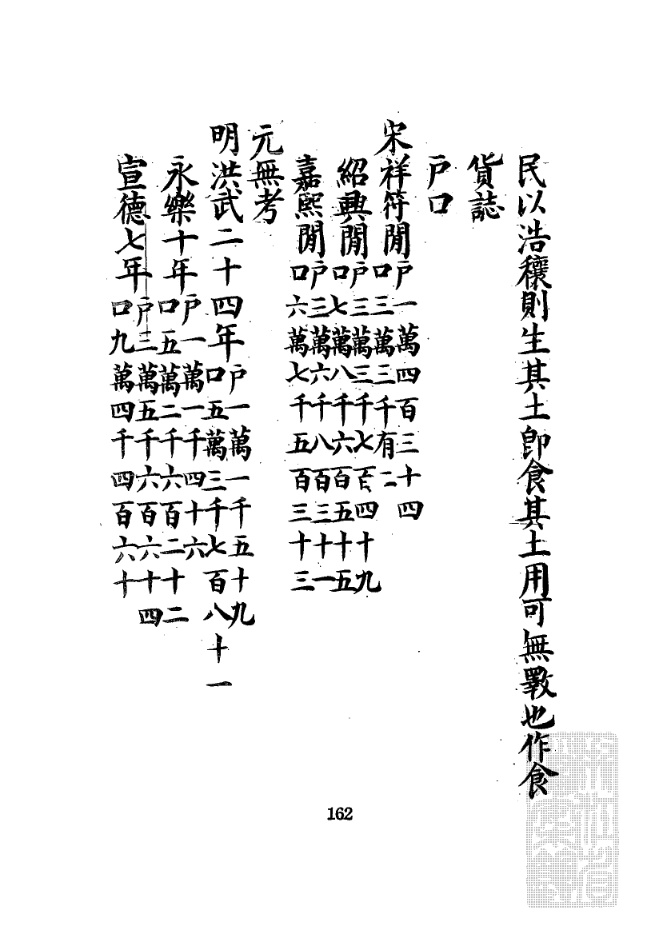 民以浩穰則生其土卽食其土用可無斁也作食
貨誌
戸口
宋祥符閒
戸一萬四百三十四
口三萬三千有二
紹興閒
戸三萬三千七百四十九
口七萬八千六百五十五
嘉熙閒
戸三萬六千八百三十一
口六萬七千五百三十三
元無考
明洪武二十四年
戸一萬一千五十九
口五萬三千七百八十一
永樂十年
戸一萬一千四十六
口五萬二千六百二十二
宣德七年
戸三萬五千六百六十四
口九萬四千四百六十
162